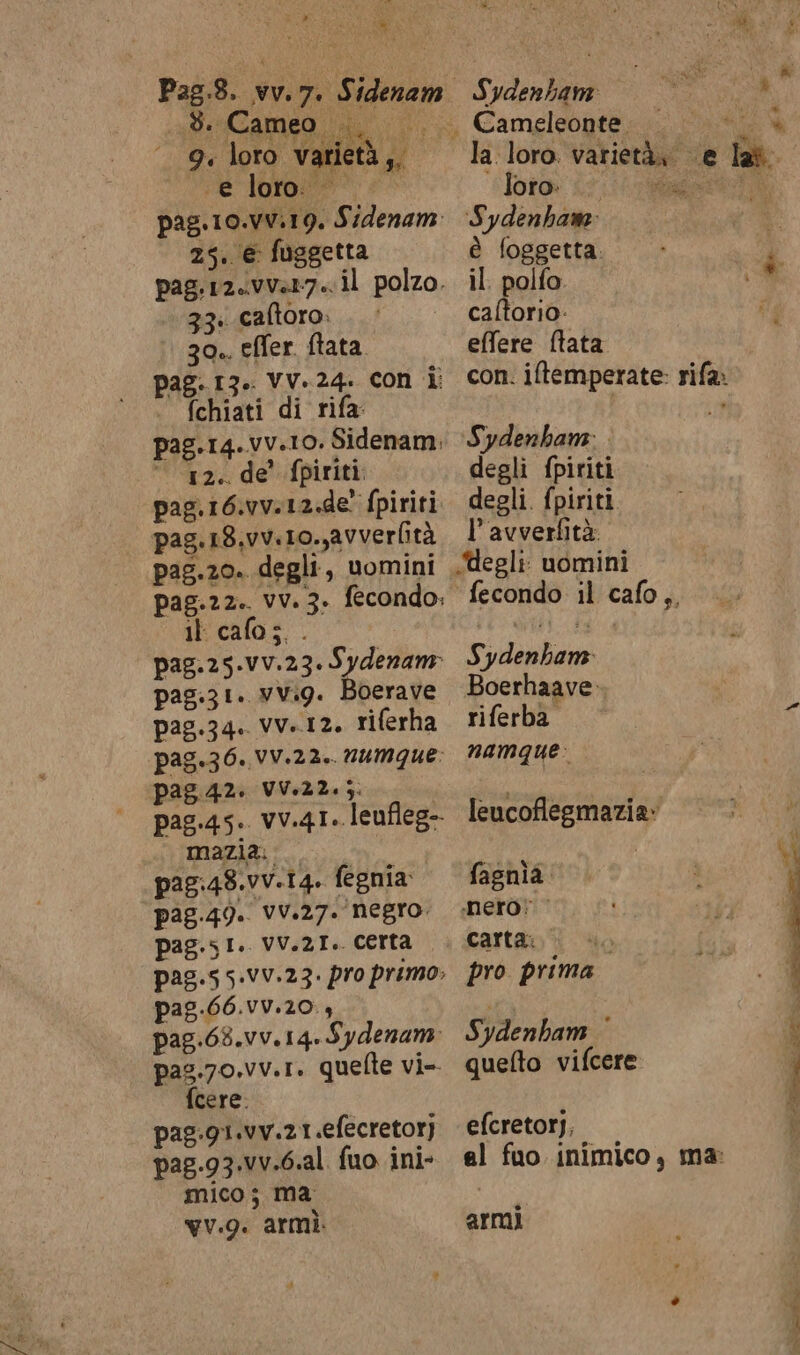 Pag.8. vv.7. Sidenam Sydenham
8. Cameo Cameleonte
9. loro varietà, la loro varietà, e la
e loro loro
pag.10.vv.19. Sidenam Sydenham
25. e ſuggetta è ſoggetta
pag.12.vv.17. il polzo. il polſo
33. caſtoro. caſtorio.
30. eſſer ſtata eſſere ſtata
pag. 13. vv. 24. con i con iſtemperate riſa
ſchiati di riſa
pag.14.vv.10. Sidenam. Sydenham
12. de' ſpiriti degli ſpiriti
pag.16.vv.12.de' ſpiriti degli ſpiriti
pag.18.vv.10.,avverſità l'avverſità
pag.20. degli, uomini degli uomini
pag.22. vv. 3. ſecondo ſecondo il caſo,
il caſo;
pag.25.vv.23. Sydenam Sydenham
pag.31. vv.9. Boerave Boerhaave
pag.34. vv.12. riſerha riſerba
pag.36. vv.22. numque namque
pag 42. vv.22.;
pag.45. vv.41. leufleg- leucoflegmazia
mazia.
pag.48.vv.14. ſegnia ſagnìa
pag.49. vv.27. negro nero
pag.51. vv.21. certa carta
pag.55.vv.23. pro primo pro prima
pag.66.vv.20.,
pag.68.vv.14. Sydenam Sydenham
pag.70.vv.1. queſte vi- queſto viſcere
ſcere.
pag.91.vv.21.eſecretorj eſcretorj,
pag.93.vv.6.al ſuo ini- al ſuo inimico, ma
mico; ma
vv.9. armì armi